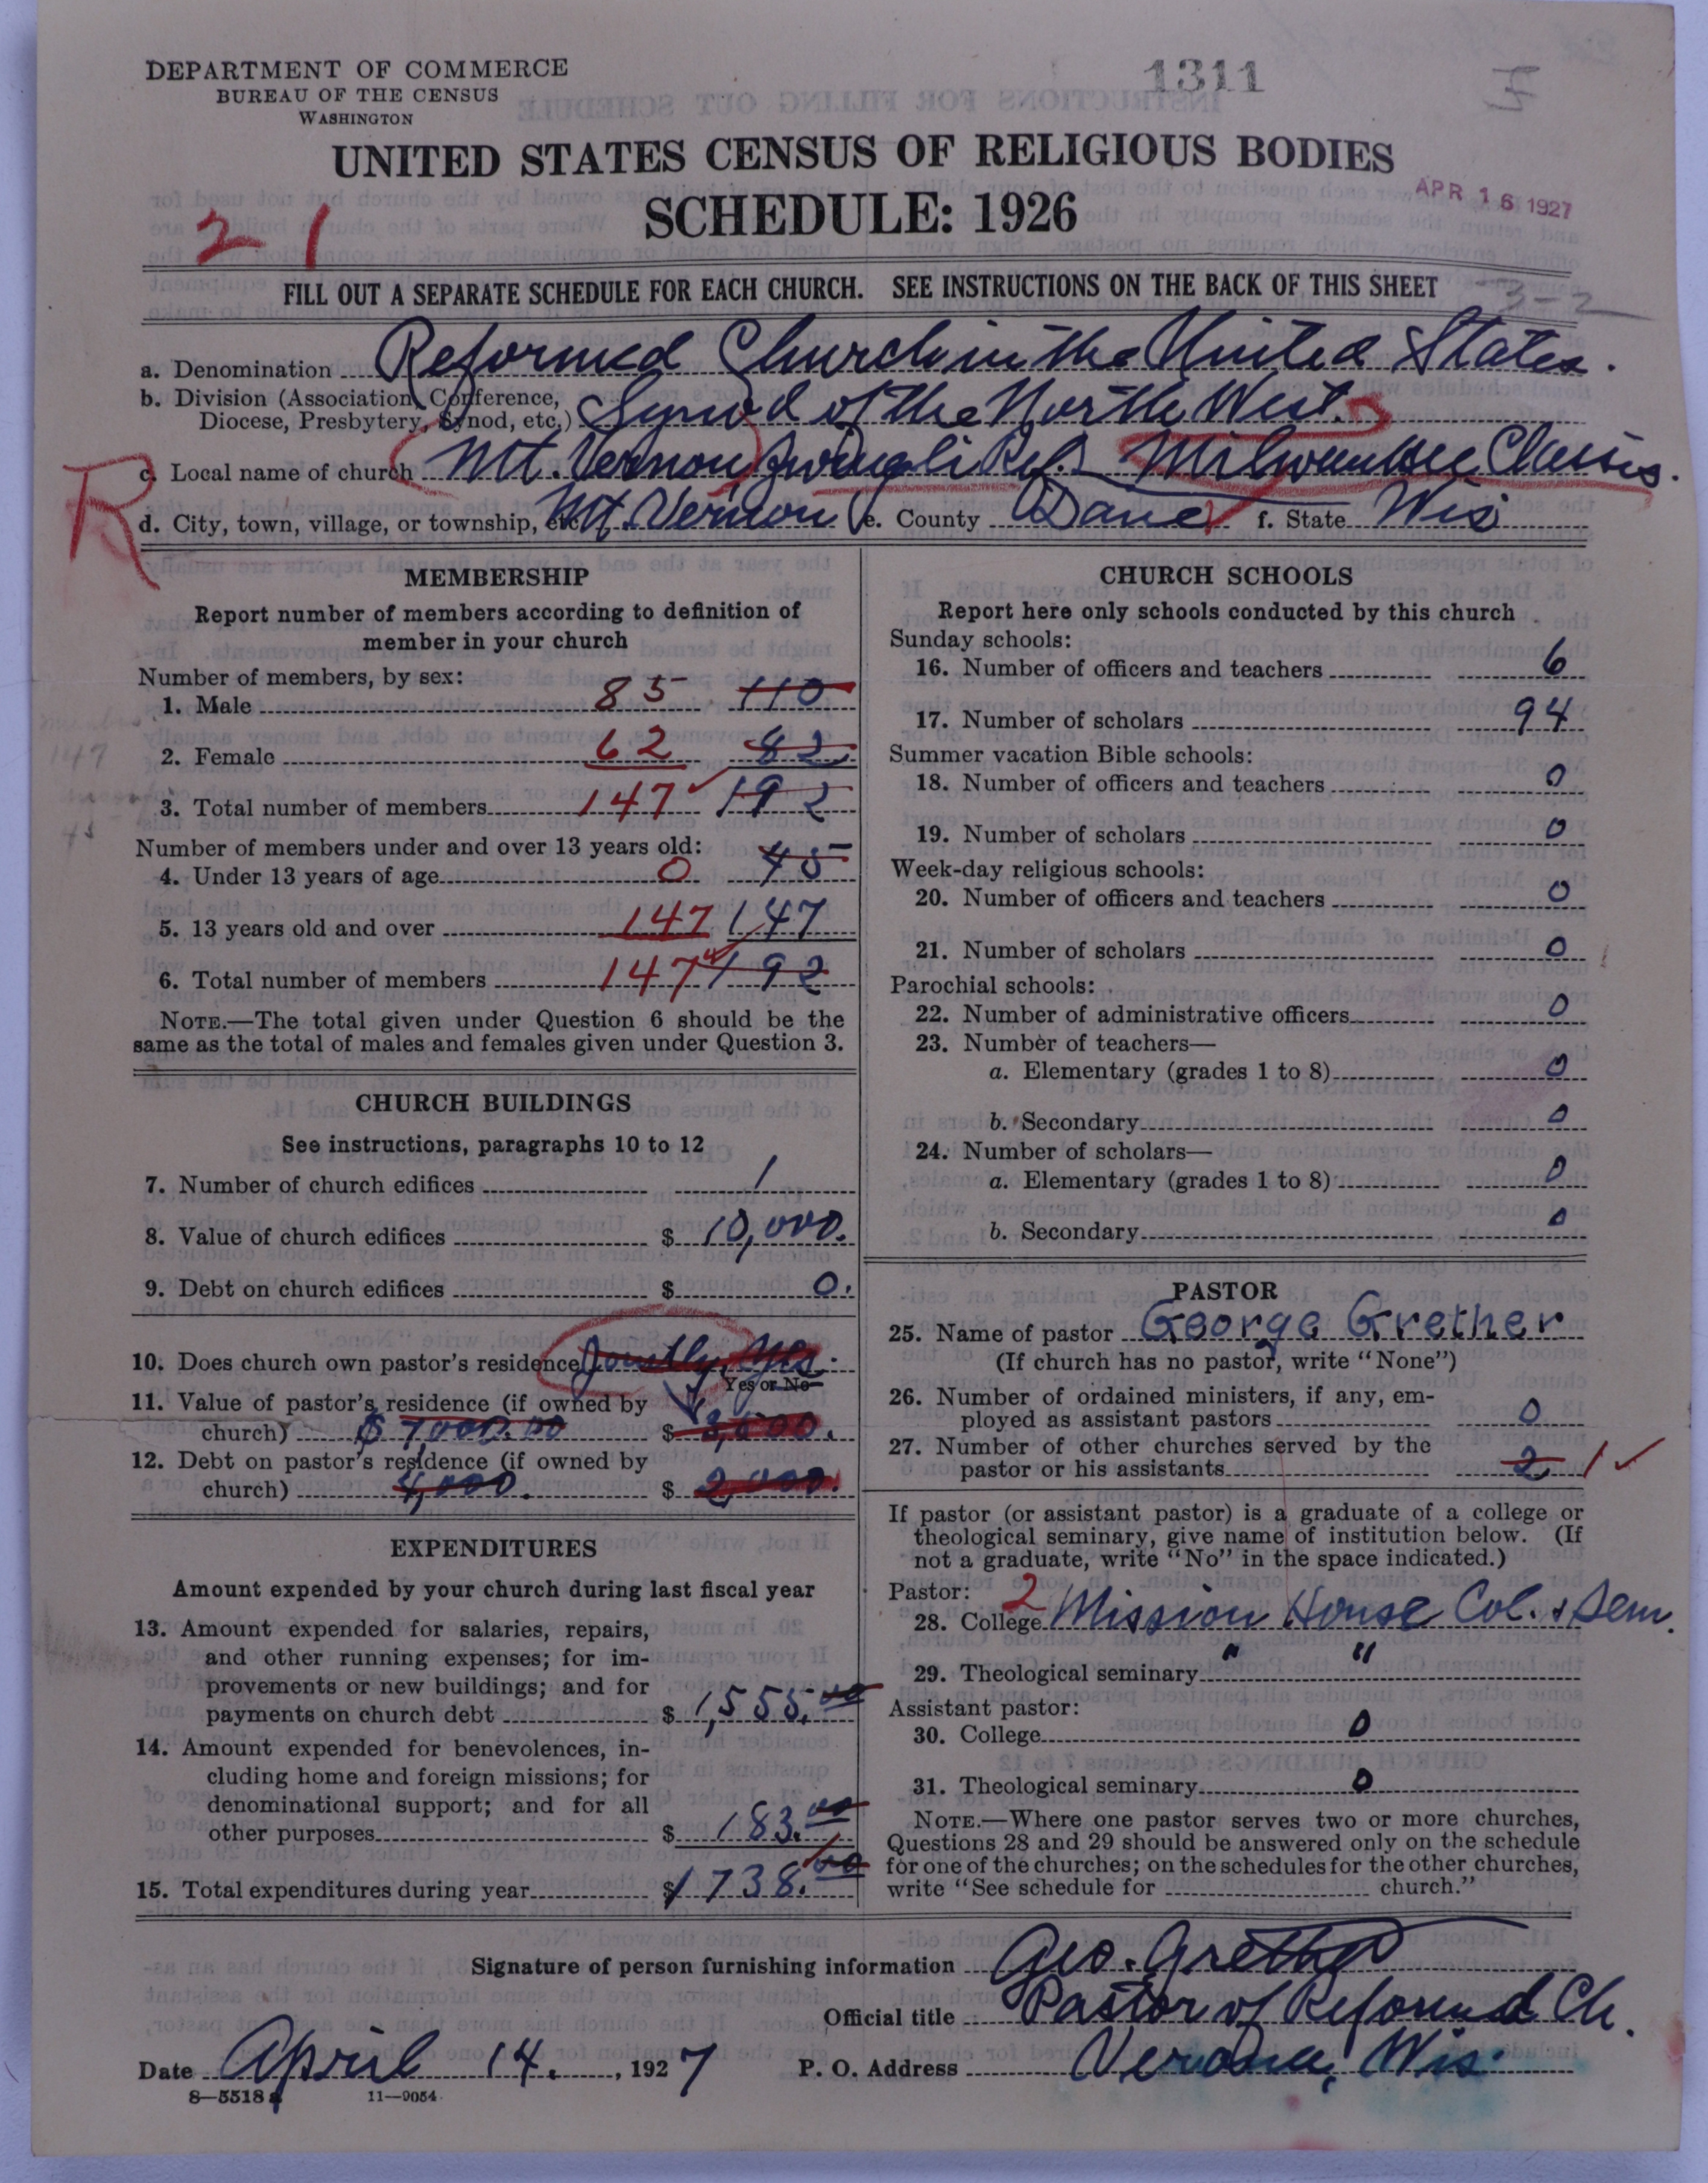 DEPARTMENT OF COMMERCE
BUREAU OF THE CENSUS
WASHINGTON
1311
UNITED STATES CENSUS OF RELIGIOUS BODIES
SCHEDULE: 1926
APR 16 1927
2 1
FILL OUT A SEPARATE SCHEDULE FOR EACH CHURCH. SEE INSTRUCTIONS ON THE BACK OF THIS SHEET
3-2
a. Denomination Reformed Church in the United States.
b. Division (Association, Conference,
Diocese, Presbytery, Synod, etc.) Synod of the North West.
R
c. Local name of church Mt. Vernon Zwingli Ref. Milwaukee Classis.
d. City, town, village, or township, etc. Mt. Vernon e. County Dane f. State Wis
MEMBERSHIP
Report number of members according to definition of
member in your church
Number of members, by sex:
1. Male 85 110
2. Female 62 82
147
3. Total number of members 147 192
45
Number of members under and over 13 years old:
4. Under 13 years of age 0 45
5. 13 years old and over 147 147
6. Total number of members 147 192
NOTE.—The total given under Question 6 should be the
same as the total of males and females given under Question 3.
CHURCH BUILDINGS
See instructions, paragraphs 10 to 12
7. Number of church edifices 1
8. Value of church edifices $ 10,000.
9. Debt on church edifices $ 0.
10. Does church own pastor's residence Jointly, Yes.
Yes or No
11. Value of pastor's residence (if owned by
church) $7,000.00 $
12. Debt on pastor's residence (if owned by
church) 4,000. $ 2,000.
EXPENDITURES
Amount expended by your church during last fiscal year
13. Amount expended for salaries, repairs,
and other running expenses; for im-
provements or new buildings; and for
payments on church debt $ 1,555.00
14. Amount expended for benevolences, in-
cluding home and foreign missions; for
denominational support; and for all
other purposes $ 183.00
15. Total expenditures during year $ 1738.00
CHURCH SCHOOLS
Report here only schools conducted by this church
Sunday schools:
16. Number of officers and teachers 6
17. Number of scholars 94
Summer vacation Bible schools:
18. Number of officers and teachers 0
19. Number of scholars 0
Week-day religious schools:
20. Number of officers and teachers 0
21. Number of scholars 0
Parochial schools:
22. Number of administrative officers 0
23. Number of teachers—
a. Elementary (grades 1 to 8) 0
b. Secondary 0
24. Number of scholars—
a. Elementary (grades 1 to 8) 0
b. Secondary 0
PASTOR
25. Name of pastor George Grether
(If church has no pastor, write "None")
26. Number of ordained ministers, if any, em-
ployed as assistant pastors 0
27. Number of other churches served by the
pastor or his assistants 2 1
If pastor (or assistant pastor) is a graduate of a college or
theological seminary, give name of institution below. (If
not a graduate, write "No" in the space indicated.)
Pastor: 2
28. College Mission House Col. & Sem.
29. Theological seminary " "
Assistant pastor:
30. College 0
31. Theological seminary 0
NOTE.—Where one pastor serves two or more churches,
Questions 28 and 29 should be answered only on the schedule
for one of the churches; on the schedules for the other churches,
write "See schedule for church."
Signature of person furnishing information Geo. Grether
Official title Pastor of Reformed Ch.
Date April 14, 1927 P. O. Address Verona, Wis.
8—5518a 11—9054